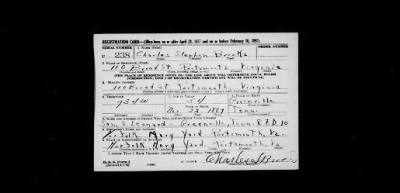 REGISTRATION CARD—(Men born on or after April 28, 1877 and on or before February 16, 1897)
SERIAL NUMBER 1. NAME (Print) ORDER NUMBER
U 238 Charles Stephen
2. PLACE OF RESIDENCE (Print)
110 Broad St. Portsmouth, Virginia
[THE PLACE OF RESIDENCE GIVEN ON THE LINE ABOVE WILL DETERMINE LOCAL BOARD
JURISDICTION; LINE 2 OF REGISTRATION CERTIFICATE WILL BE IDENTICAL]
3. MAILING ADDRESS
110 Broad St. Portsmouth, Virginia
4. TELEPHONE 5. AGE IN YEARS 6. PLACE OF BIRTH
934W 54 Greenville
Dec 23 1887 Tenn.
7. NAME AND ADDRESS OF PERSON WHO WILL ALWAYS KNOW YOUR ADDRESS
Leonard - Greenville, Tenn. R.F.D. 10
8. EMPLOYER'S NAME AND ADDRESS
Norfolk Navy Yard Portsmouth, Va.
9. PLACE OF EMPLOYMENT OR BUSINESS
Norfolk Navy Yard Portsmouth, Va.
I AFFIRM THAT I HAVE VERIFIED ABOVE ANSWERS AND THAT THEY ARE TRUE.
Charles S